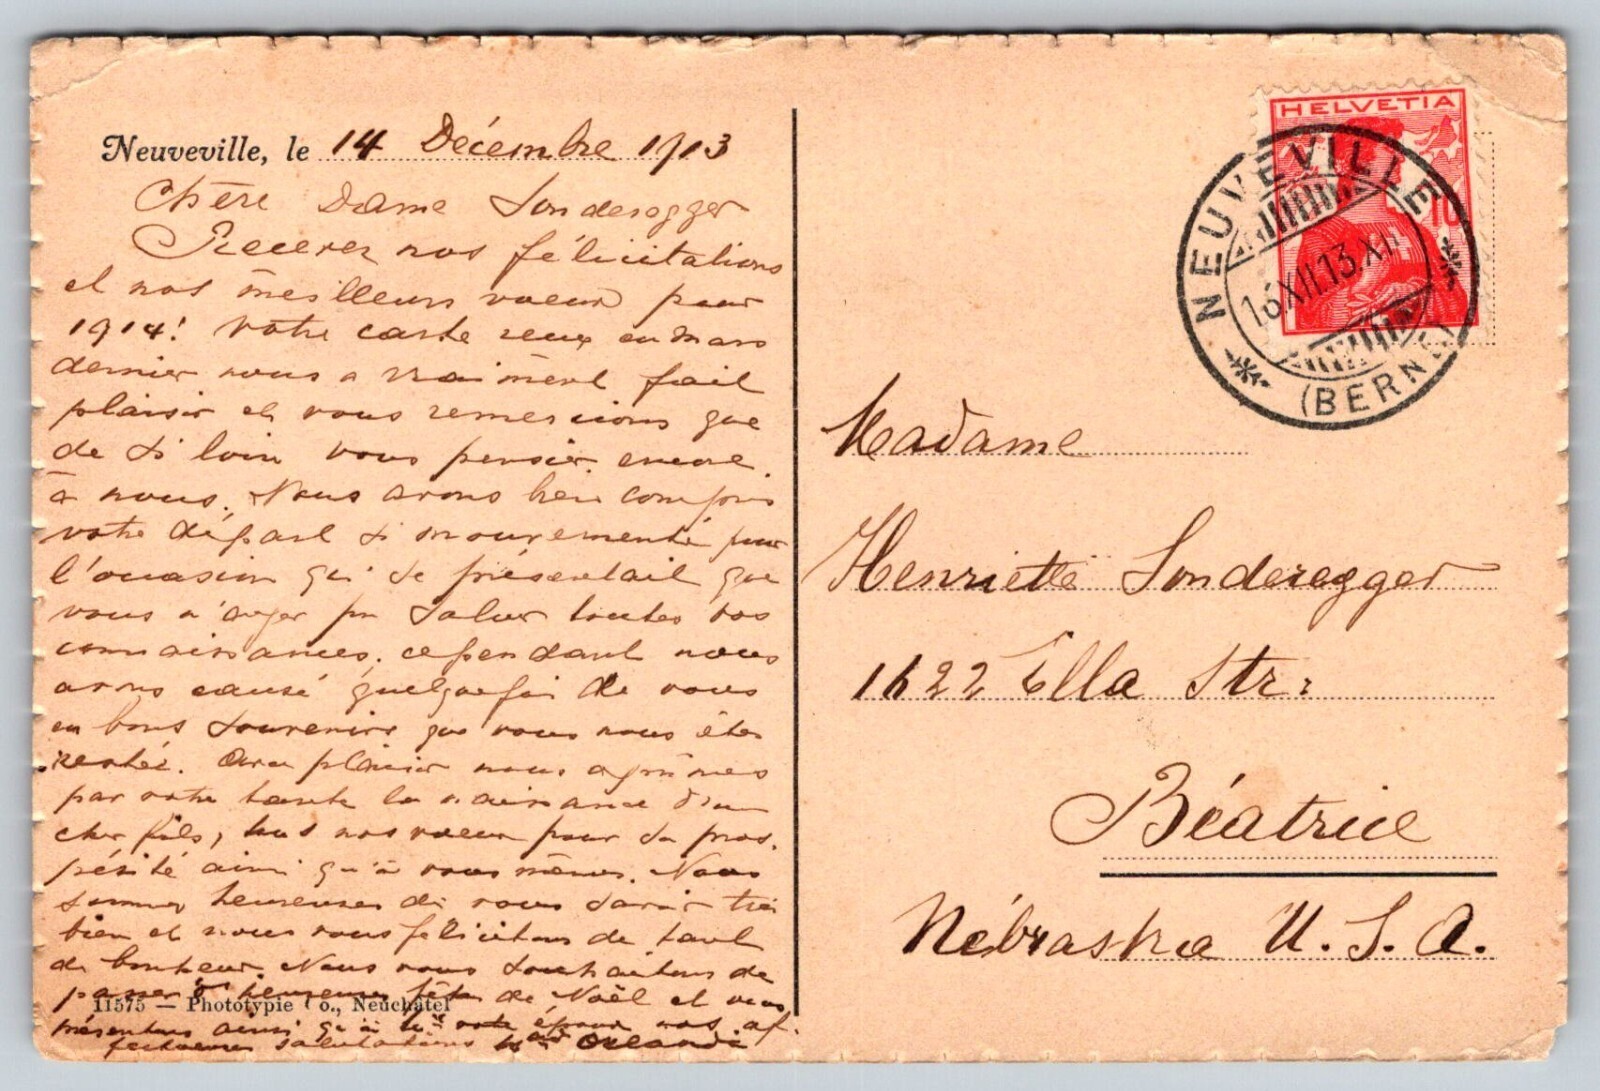 Neuveville, le 14 Décembre 1913
Chère Dame Sonderegger
Recevez nos félicitations
et nos meilleurs voeux pour
1914! Votre carte reçue en mars
dernier nous a vraiment fait
plaisir et vous remercions que
de si loin vous pensiez encore
à nous. Nous avons bien compris
votre départ si mouvementé pour
l'occasion qui se présentait que
vous n'ayez pu saluer toutes vos
connaissances; cependant nous
avons causé quelquefois de vous
en bons souvenirs que vous nous êtes
restée. Avec plaisir nous apprîmes
par votre tante la naissance d'un
cher fils, tous nos voeux pour sa pros-
périté ainsi qu'à vous mêmes. Nous
sommes heureuses de vous savoir très
bien et nous vous félicitons de tant
de bonheur. Nous vous souhaitons de
passer d'heureuses fêtes de Noël et vous
présentons ainsi qu'à votre époux nos af-
fectueuses salutations Orlandi
11575 — Phototypie Co., Neuchâtel
HELVETIA
10
NEUVEVILLE
16.XII.13.XII
(BERNE)
Madame
Henriette Sonderegger
1622 Ella Str:
Béatrice
Nébraska U.S.A.